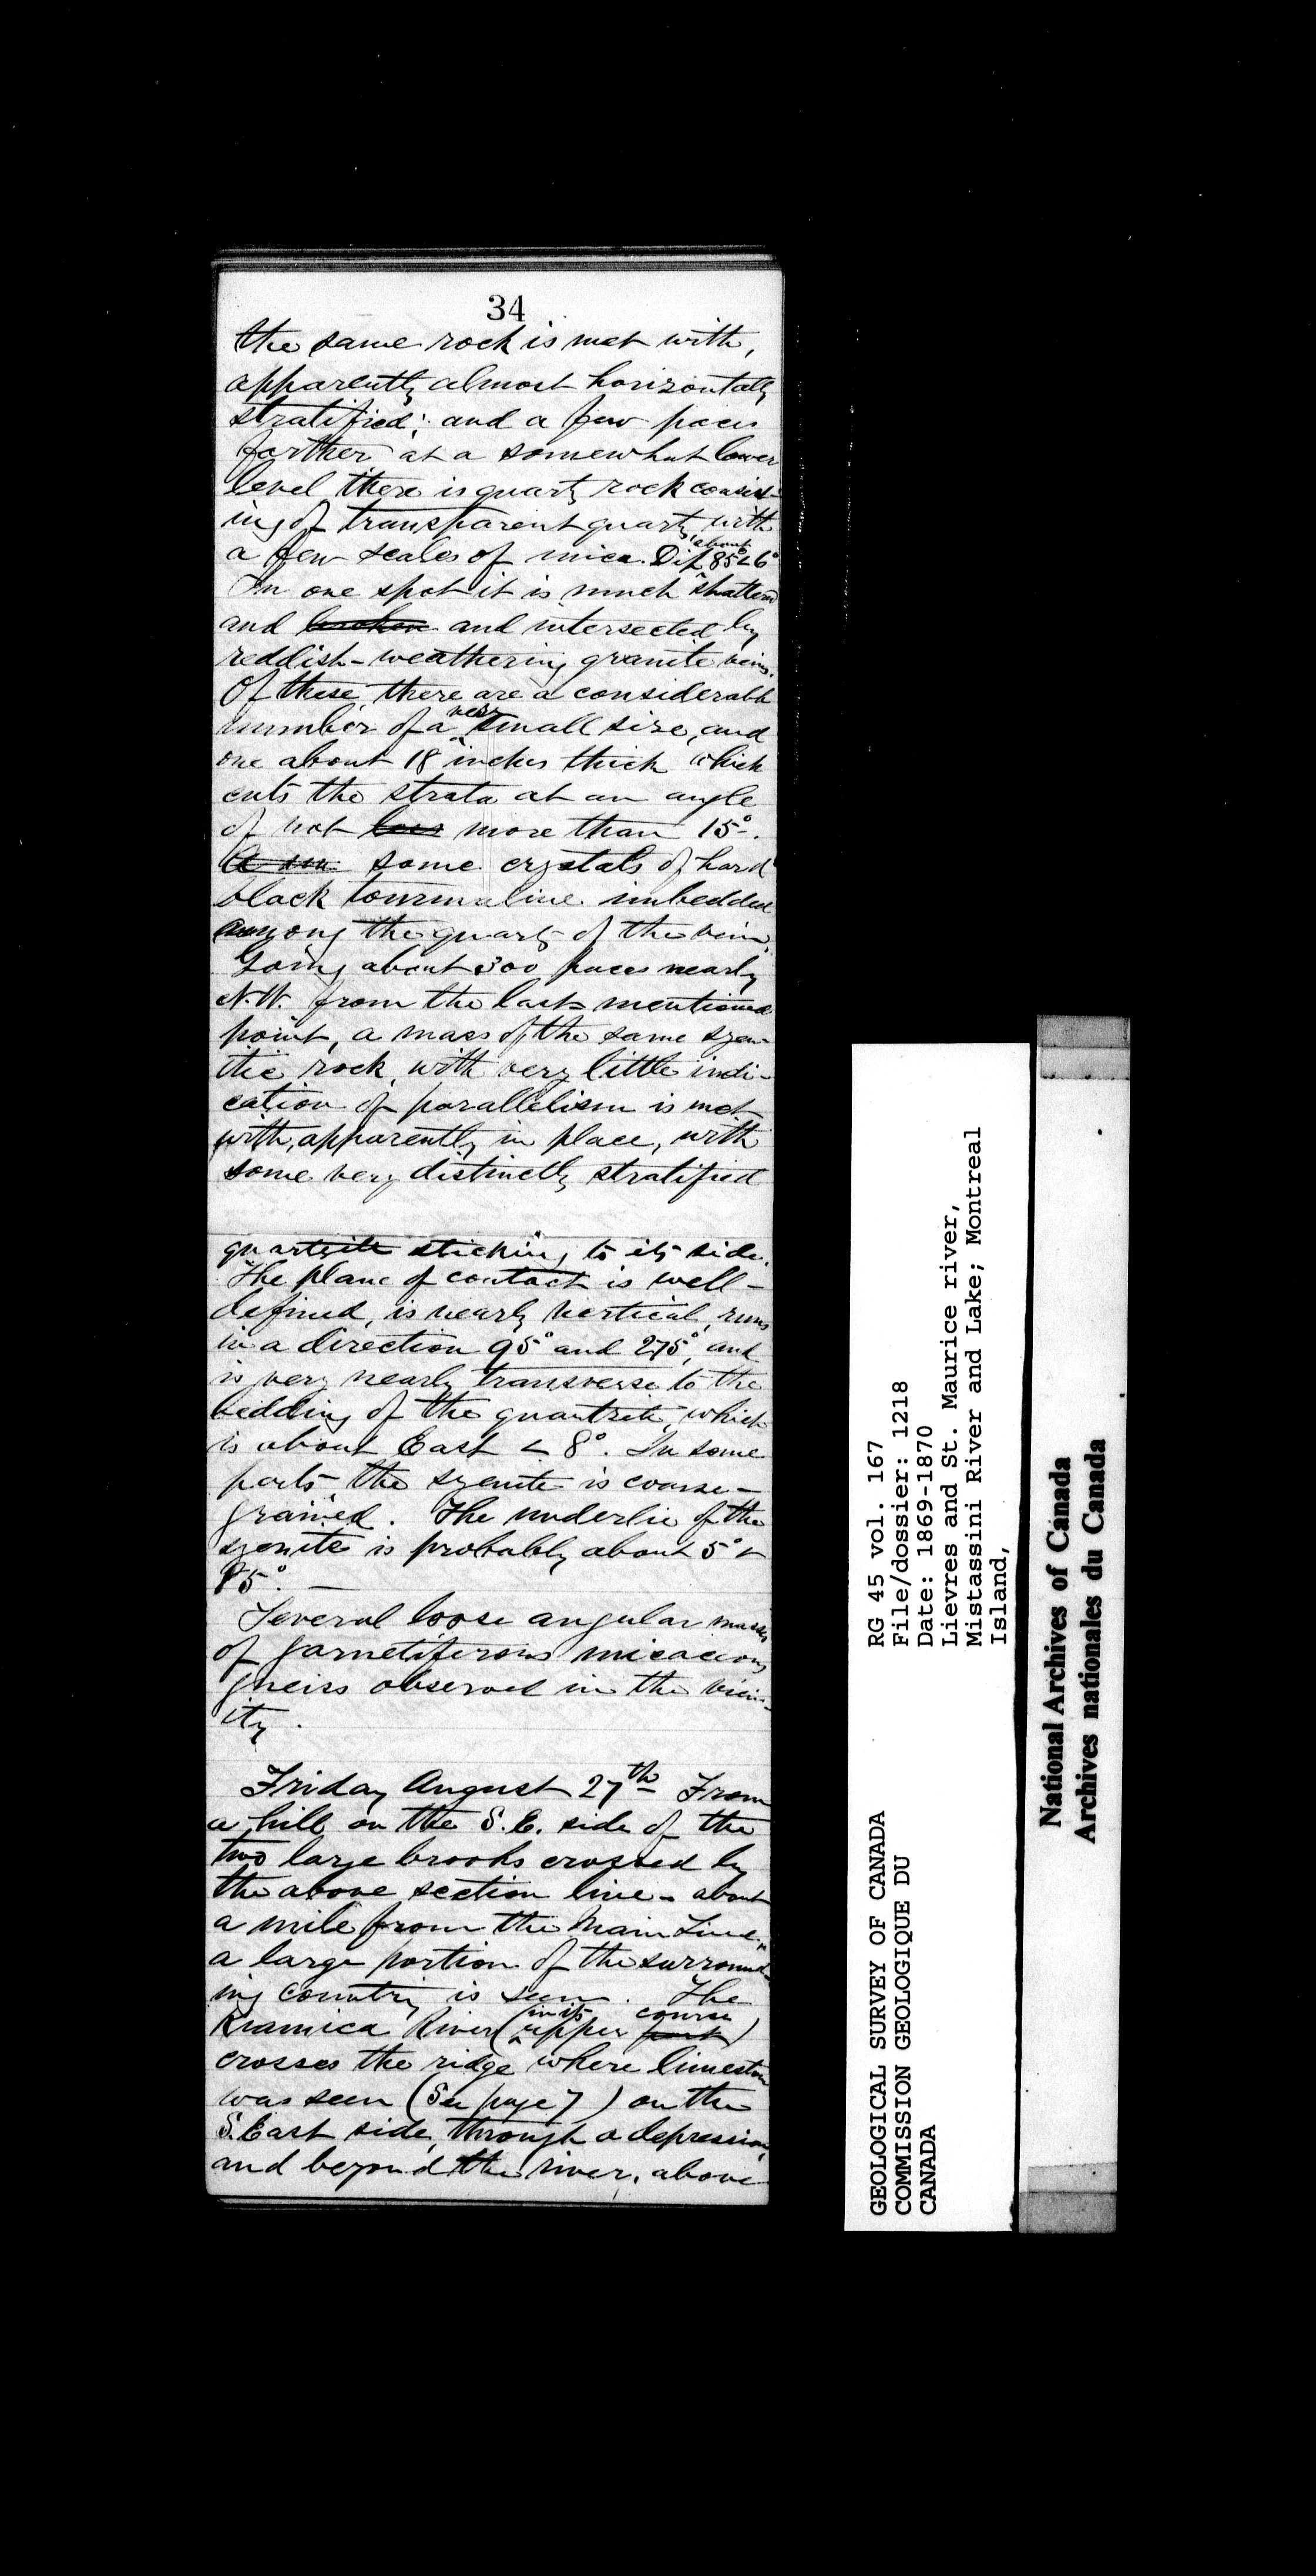 34
the same rock is met with,
apparently almost horizontally
stratified; and a few paces
farther at a somewhat lower
level there is quartz rock consist-
ing of transparent quartz, with
a few scales of mica. Dip about 85° < 6°
In one spot it is much shattered
and broken and intersected by
reddish-weathering granite veins.
Of these, there are a considerable
number of a very small size, and
one about 18 inches thick which
cuts the strata at an angle
of not less more than 15°.
some crystals of hard
black tourmaline imbedded
among the quartz of the vein.
Going about 300 paces nearly
N.W. from the last mentioned
point, a mass of the same syen-
itic rock, with very little indi-
cation of parallelism is met
with, apparently in place, with
some very distinctly stratified
quartzite sticking to its side.
The plane of contact is well-
defined, is nearly vertical, runs
in a direction 95° and 275°, and
is very nearly transverse to the
bedding of the quartzite, which
is about East < 8°. In some
parts the syenite is coarse-
grained. The underlie of the
syenite is probably about 5° <
85°.
Several loose angular masses
of garnetiferous micaceous
gneiss observed in the vicin-
ity.
Friday August 27th From
a hill on the S.E. side of the
two large brooks crossed by
the above section line - about
a mile from the Main Line,
a large portion of the surround-
ing country is seen. The
Kiamica River (in its upper part course)
crosses the ridge where limestone
was seen (See page 7) on the
S. East side, through a depression,
and beyond the river, above
RG 45 vol. 167
File/dossier: 1218
Date: 1869-1870
Lievres and St. Maurice river,
Mistassini River and Lake; Montreal
Island,
GEOLOGICAL SURVEY OF CANADA
COMMISSION GEOLOGIQUE DU
CANADA
National Archives of Canada
Archives nationales du Canada